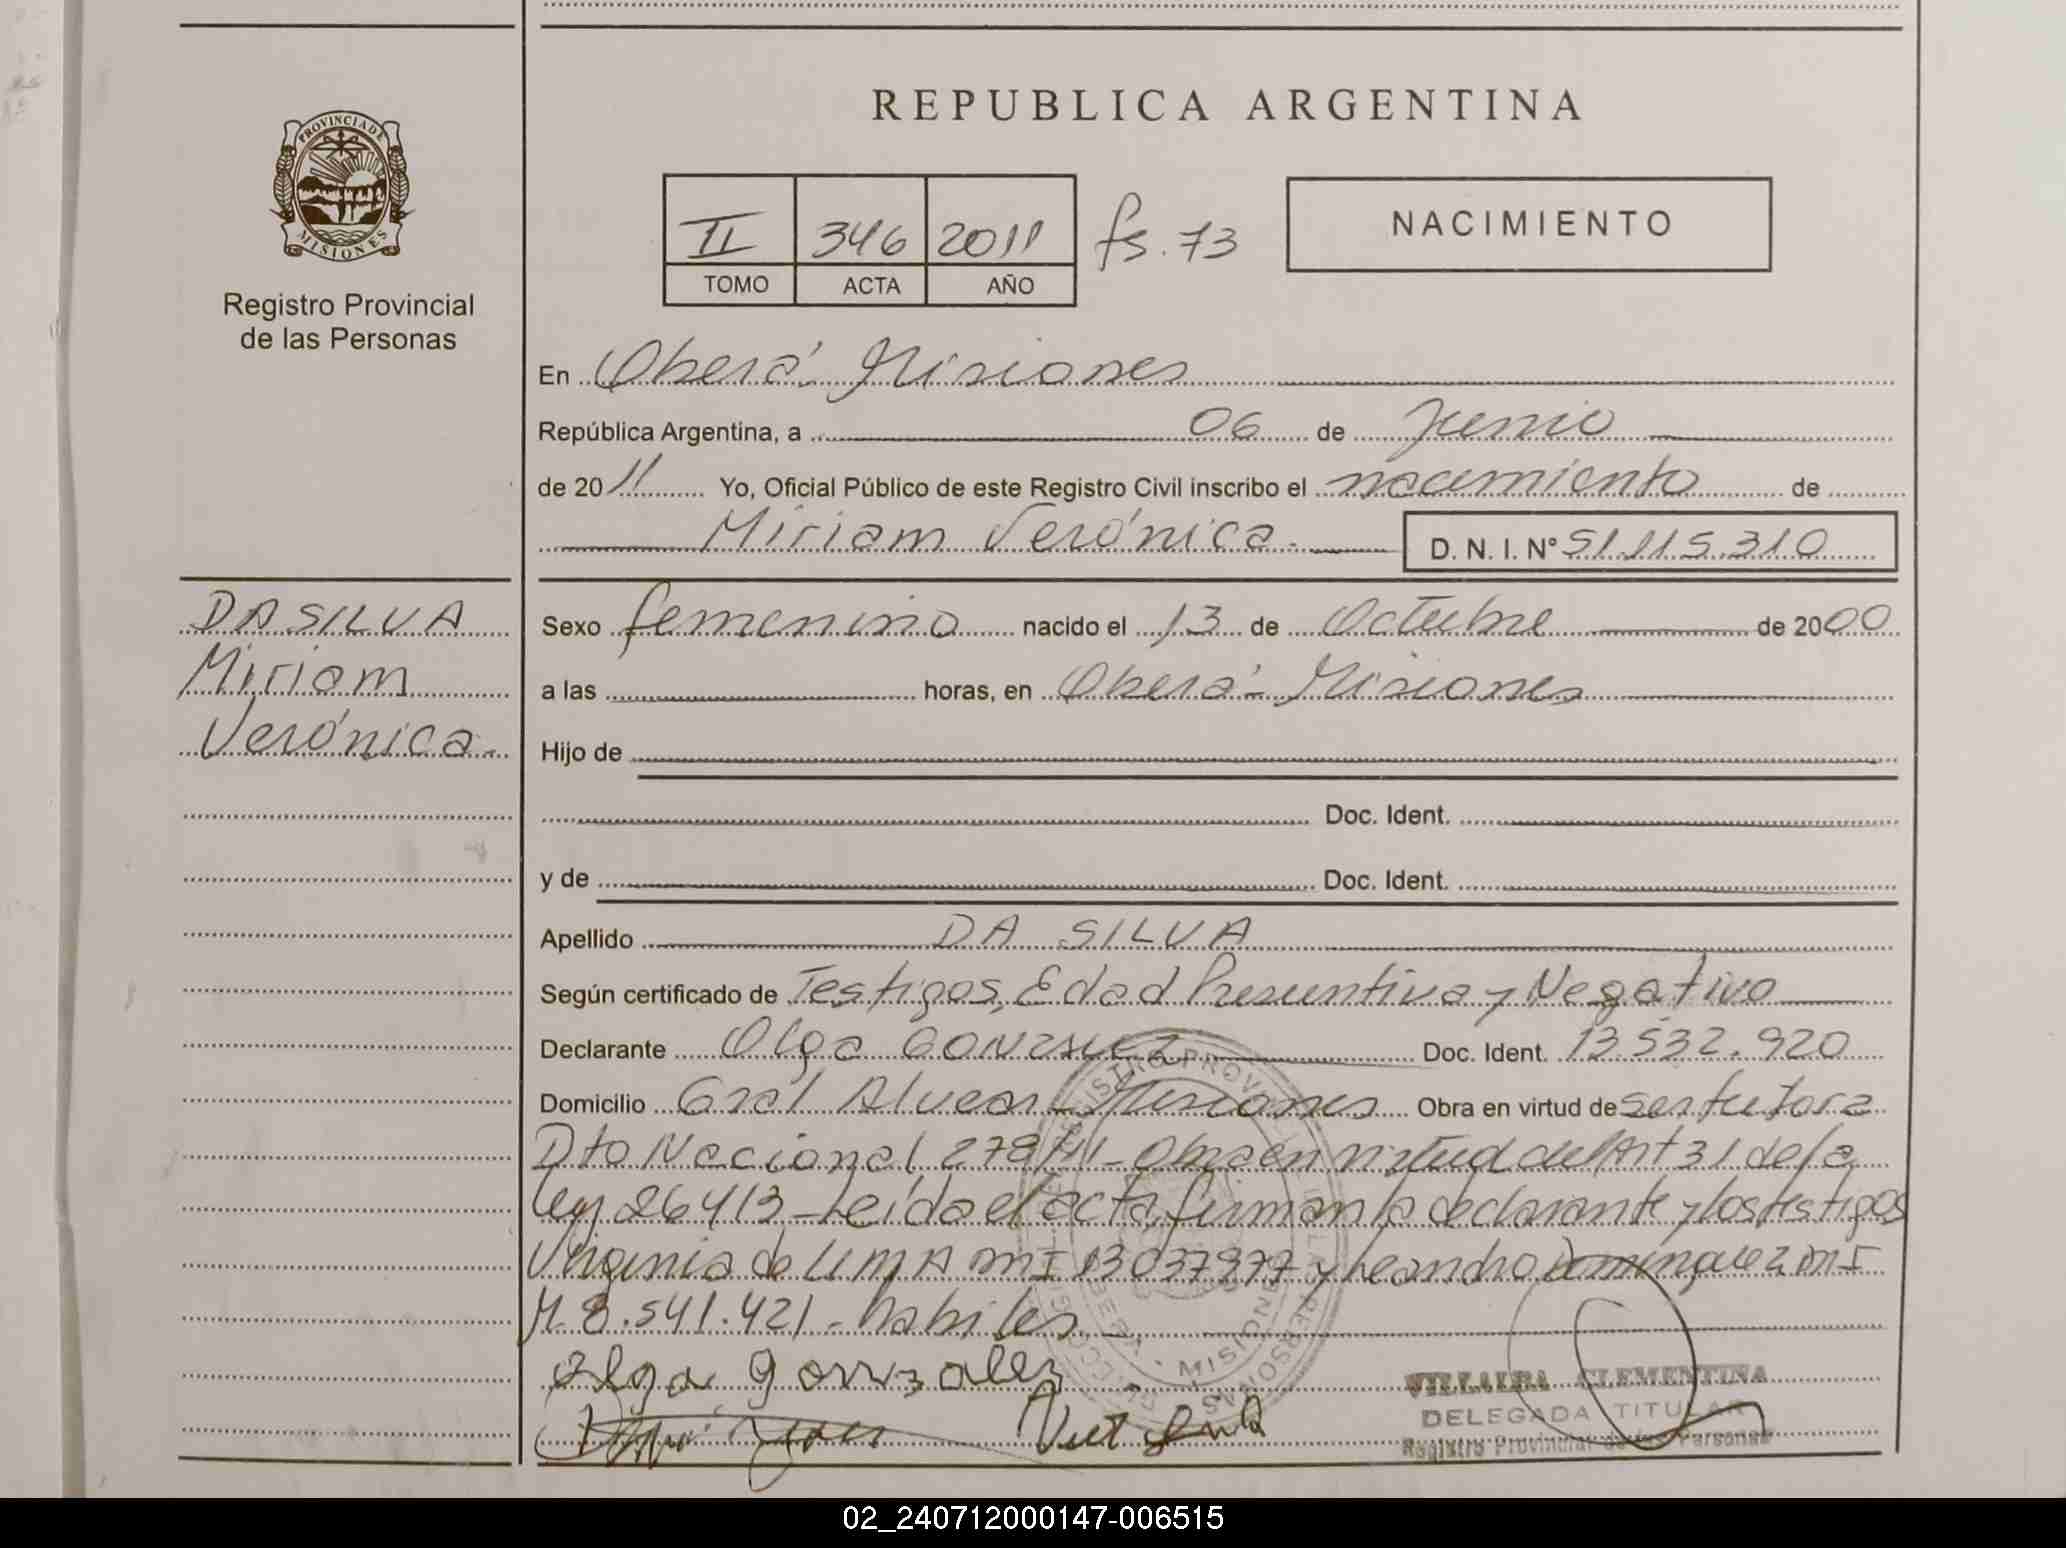 REPUBLICA ARGENTINA
PROVINCIA DE
MISIONES
Registro Provincial
de las Personas
II 346 2011 fs. 73
TOMO ACTA AÑO
NACIMIENTO
En Oberá Misiones
República Argentina, a 06 de Junio
de 2011 Yo, Oficial Público de este Registro Civil inscribo el nacimiento de
Miriam Verónica.- D. N. I. N° 51.115.310
DA SILVA
Miriam
Verónica.-
Sexo femenino nacido el 13 de Octubre de 2000
a las horas, en Oberá - Misiones
Hijo de
Doc. Ident.
y de Doc. Ident.
Apellido DA SILVA
Según certificado de Testigos, Edad Presuntiva y Negativo
Declarante Olga GONZALEZ Doc. Ident. 13.532.920
Domicilio Gral Alvear - Misiones Obra en virtud de ser tutora
Dto Nacional 278/11 - Obra en virtud del Art 31 de la
ley 26413 - Leída el acta, firman la declarante y los testigos
Virginia de LIMA MI 13037977 y Leandro Dominguez MI
M. 8.541.421 - habiles -
Olga gonzalez
VILLALBA CLEMENTINA
DELEGADA TITULAR
Registro Provincial de las Personas
02_240712000147-006515